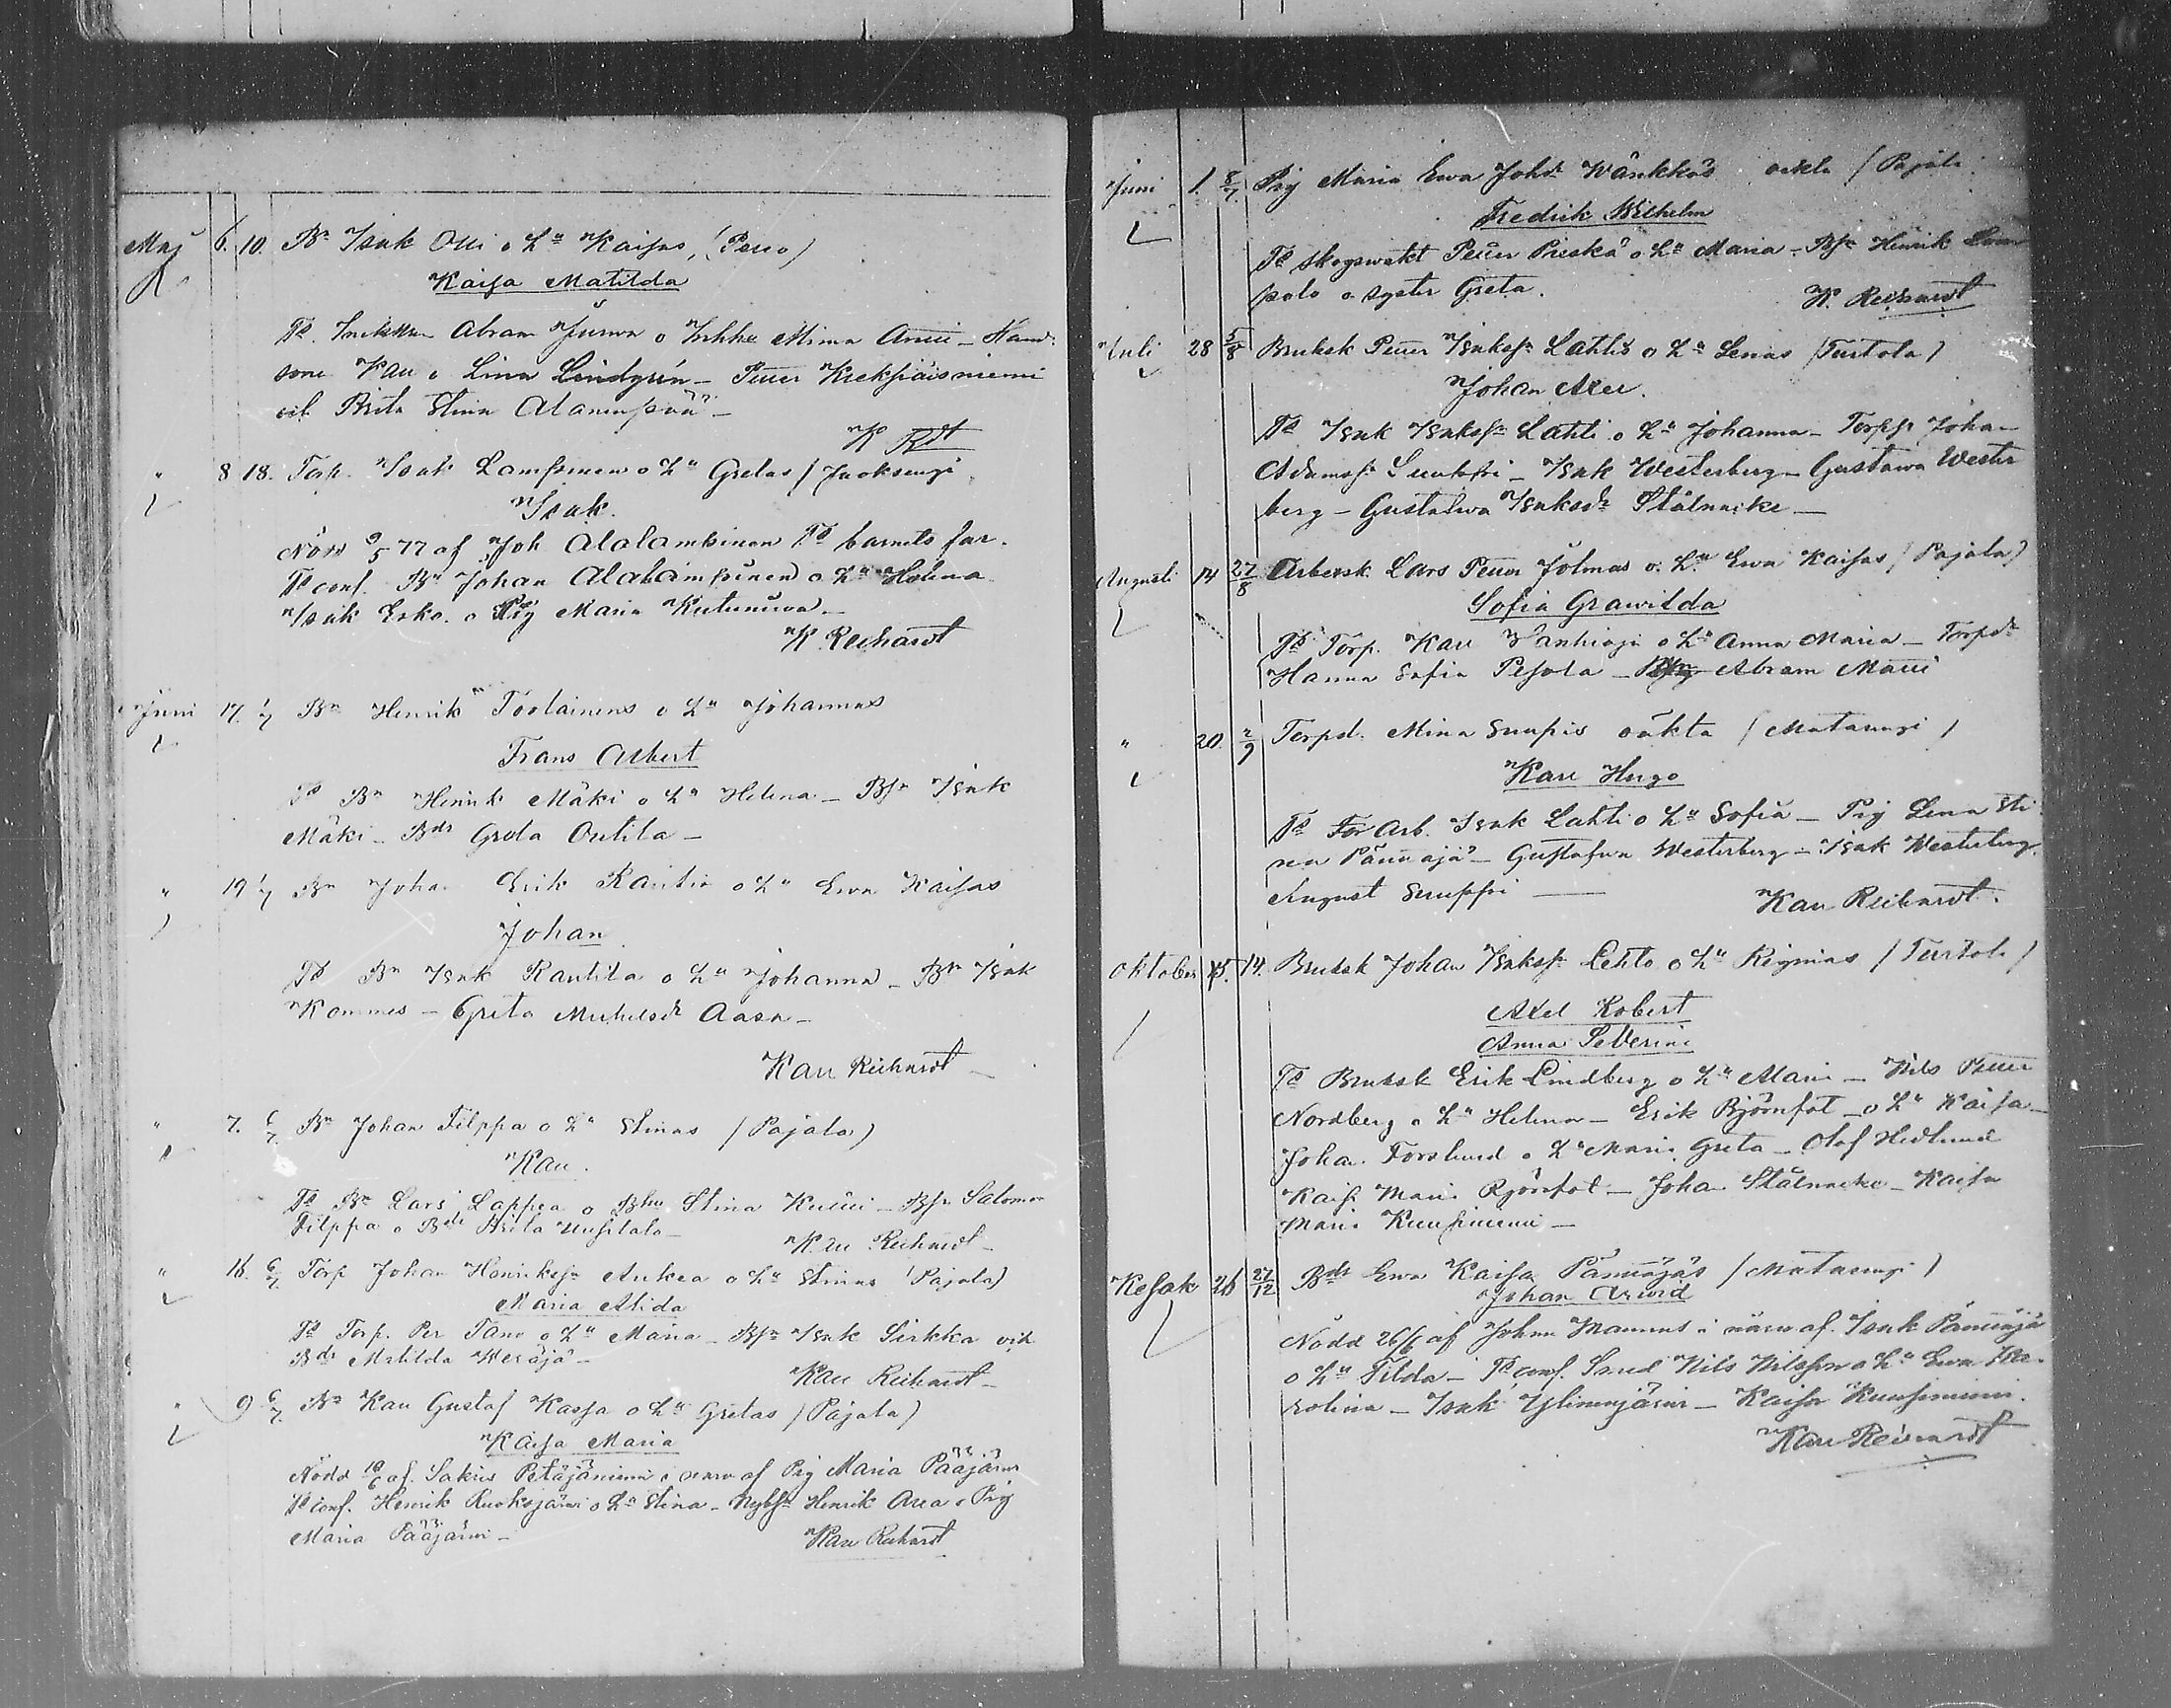 Maj 6. 10. Bn Isak Olli o Hu Kaisas, (Pello)
Kaisa Matilda
Td. Inhikan Abram Juswa o Inhka Mina Anni - Hand-
sone Karl o Lina Lindgrén - Petter Kreksiäisniemi
och Brita Stina Alamuspää -
K Rdt
" 8 18. Torp. Isak Lampsinen o Hu Gretas / Juoksengi
Isak.
Nödd 9/5 77 af Joh Alalamsinen Td barnets far.
Td conf. Bn Johan Alalampsinen o Hu Helena
Isak Esko. o Pig Maria Kutuniwa -
K. Reichardt
Juni 17. 1/7 Bn Henrik Toolainens o Hu Johannas
Frans Albert
Td Bn Henrik Mäki o Hu Helena - Bsn Isak
Mäki - Bdr Greta Outila -
" 19 1/7 Bn Johan Erik Rautio o Hu Ewa Kaisas
Johan
Td Bn Isak Rautila o Hu Johanna - Bn Isak
Kommes - Greta Michelsdr Aasa -
Karl Reichardt -
" 7. 6/7. Bn Johan Filppa o Hu Stinas / Pajala)
Karl.
Td Bn Lars Lappea o Bhu Stina - Bsn Salomon
Filppa o Bdr Brita Uusitalo -
Karl Reichardt -
" 16. 6/7. Torp Johan Henriksn Ankea o Hu Stinas (Pajala)
Maria Alida
Td Torp. Per Tano o Hu Maria - Bsn Isak Sirkka och
Bdr Matilda Wesäjä -
Karl Reichardt -
" 9 6/7. Bn Karl Gustaf Kassa o Hu Gretas / Pajala)
Kaisa Maria
Nödd 10/6 af. Sakris Petäjäniemi i närw af Pig Maria Pääjärwi
Td conf. Henrik Ruoksjärwi o Hu Stina - Nybsn Henrik Area o Pig
Maria Pääjärwi -
Karl Reichardt
Juni 1. 8/7. Pig Maria Ewa Johsdr Wänkkös oäkta / Pajala
Fredrik Wilhelm
Td skogswakt Petter Pieskä o Hu Maria - Bsn Henrik Lom
polo o syster Greta.
K. Reichardt
Juli 28 5/8 Bruksk Petter Isaksn Lahtis o Hu Lenas (Turtola)
Johan Axel.
Td Isak Isaksn Lahti o Hu Johanna - Torpsn Johan
Adamsn - Isak Westerberg - Gustawa Wester
berg - Gustawa Isaksdr Stålnacke -
Augusti 14 27/8 Arbetsk. Lars Petter Jolmas o. Hu. Ewa Kaisas / Pajala)
Sofia Grawilda
Td Torp. Karl Wanhioja o Hu Anna Maria - Torpdr
Hanna Sofia Pesola - Abram Matti
" 20. 2/9 Torpd. Mina Snupis oäkta / Matarengi /
Karl Hugo
Td Arb. Isak Lahti o Hu Sofia - Pig Lena Sti
na Pännäjä - Gustafwa Westerberg - Isak Westerberg
August Snuppi -
Karl Reichardt.
Oktober 15. 14. Bruksk Johan Isaksn Lehto o Hu Reginas / Turtola /
Axel Robert
Anna Severina
Td Bruksk Erik Lindberg o Hu Maria - Nils Petter
Nordberg o Hu Helena - Erik Björnfot - o Hu Kaisa -
Johan Forslund o Hu Maria Greta - Olof Hedlund
Kaisa Maria Björnfot - Johan Stålnacke - Kaisa
Maria Kuusiniemi -
Kesäk 26 27/12 Bdr Ewa Kaisa Pännäjäs / Matarengi /
Johan Arwid
Nödd 26/6 af Johan Mannus i närw af. Isak Pännäjä
o Hu Tilda - Td conf. Smed Nils Nilsson o Hu Ewa Ka-
rolina - Isak Ylinenjärwi - Kaisa Kuusiniemi.
Karl Reichardt